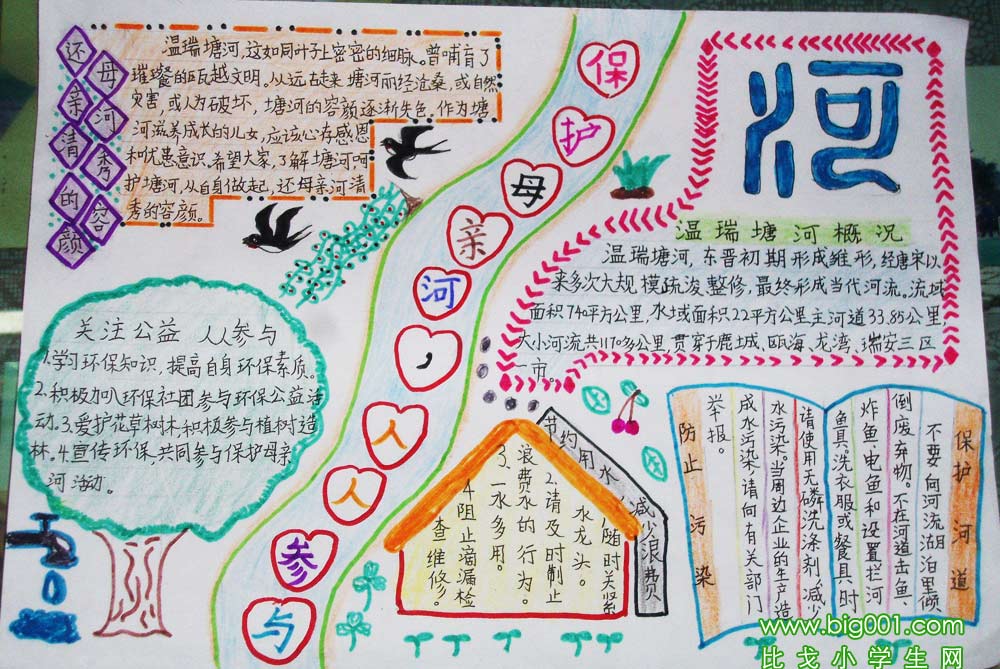 还母亲河清秀的容颜
温瑞塘河,这如同叶子上密密的细脉。曾哺育了
璀璨的瓯越文明。从远古走来 塘河历经沧桑,或自然
灾害,或人为破坏,塘河的容颜逐渐失色。作为塘
河滋养成长的儿女,应该心存感恩
和忧患意识。希望大家,了解塘河呵
护塘河,从自身做起,还母亲河清
秀的容颜。
保护母亲河,人人参与
河
温瑞塘河概况
温瑞塘河,东晋初期形成雏形,经唐宋以
来多次大规模疏浚、整修,最终形成当代河流。流域
面积740平方公里,水域面积22平方公里主河道33.85公里,
大小河流共1170多公里,贯穿于鹿城、瓯海、龙湾、瑞安三区
一市。
关注公益 人人参与
1.学习环保知识,提高自身环保素质。
2.积极加入环保社团参与环保公益活
动.3.爱护花草树木,积极参与植树造
林。4.宣传环保,共同参与保护母亲
河活动。
节约用水 减少浪费
1.随时关紧
水龙头。
2.请及时制止
浪费水的行为。
3.一水多用。
4.阻止滴漏检
查维修。
保护河道
不要向河流湖泊里倾
倒废弃物。不在河道击鱼、
炸鱼、电鱼和设置拦河
鱼具。洗衣服或餐具时
请使用无磷洗涤剂,减少
水污染。当周边企业的生产造
成水污染,请向有关部门
举报。
防止污染
www.big001.com
比戈小学生网